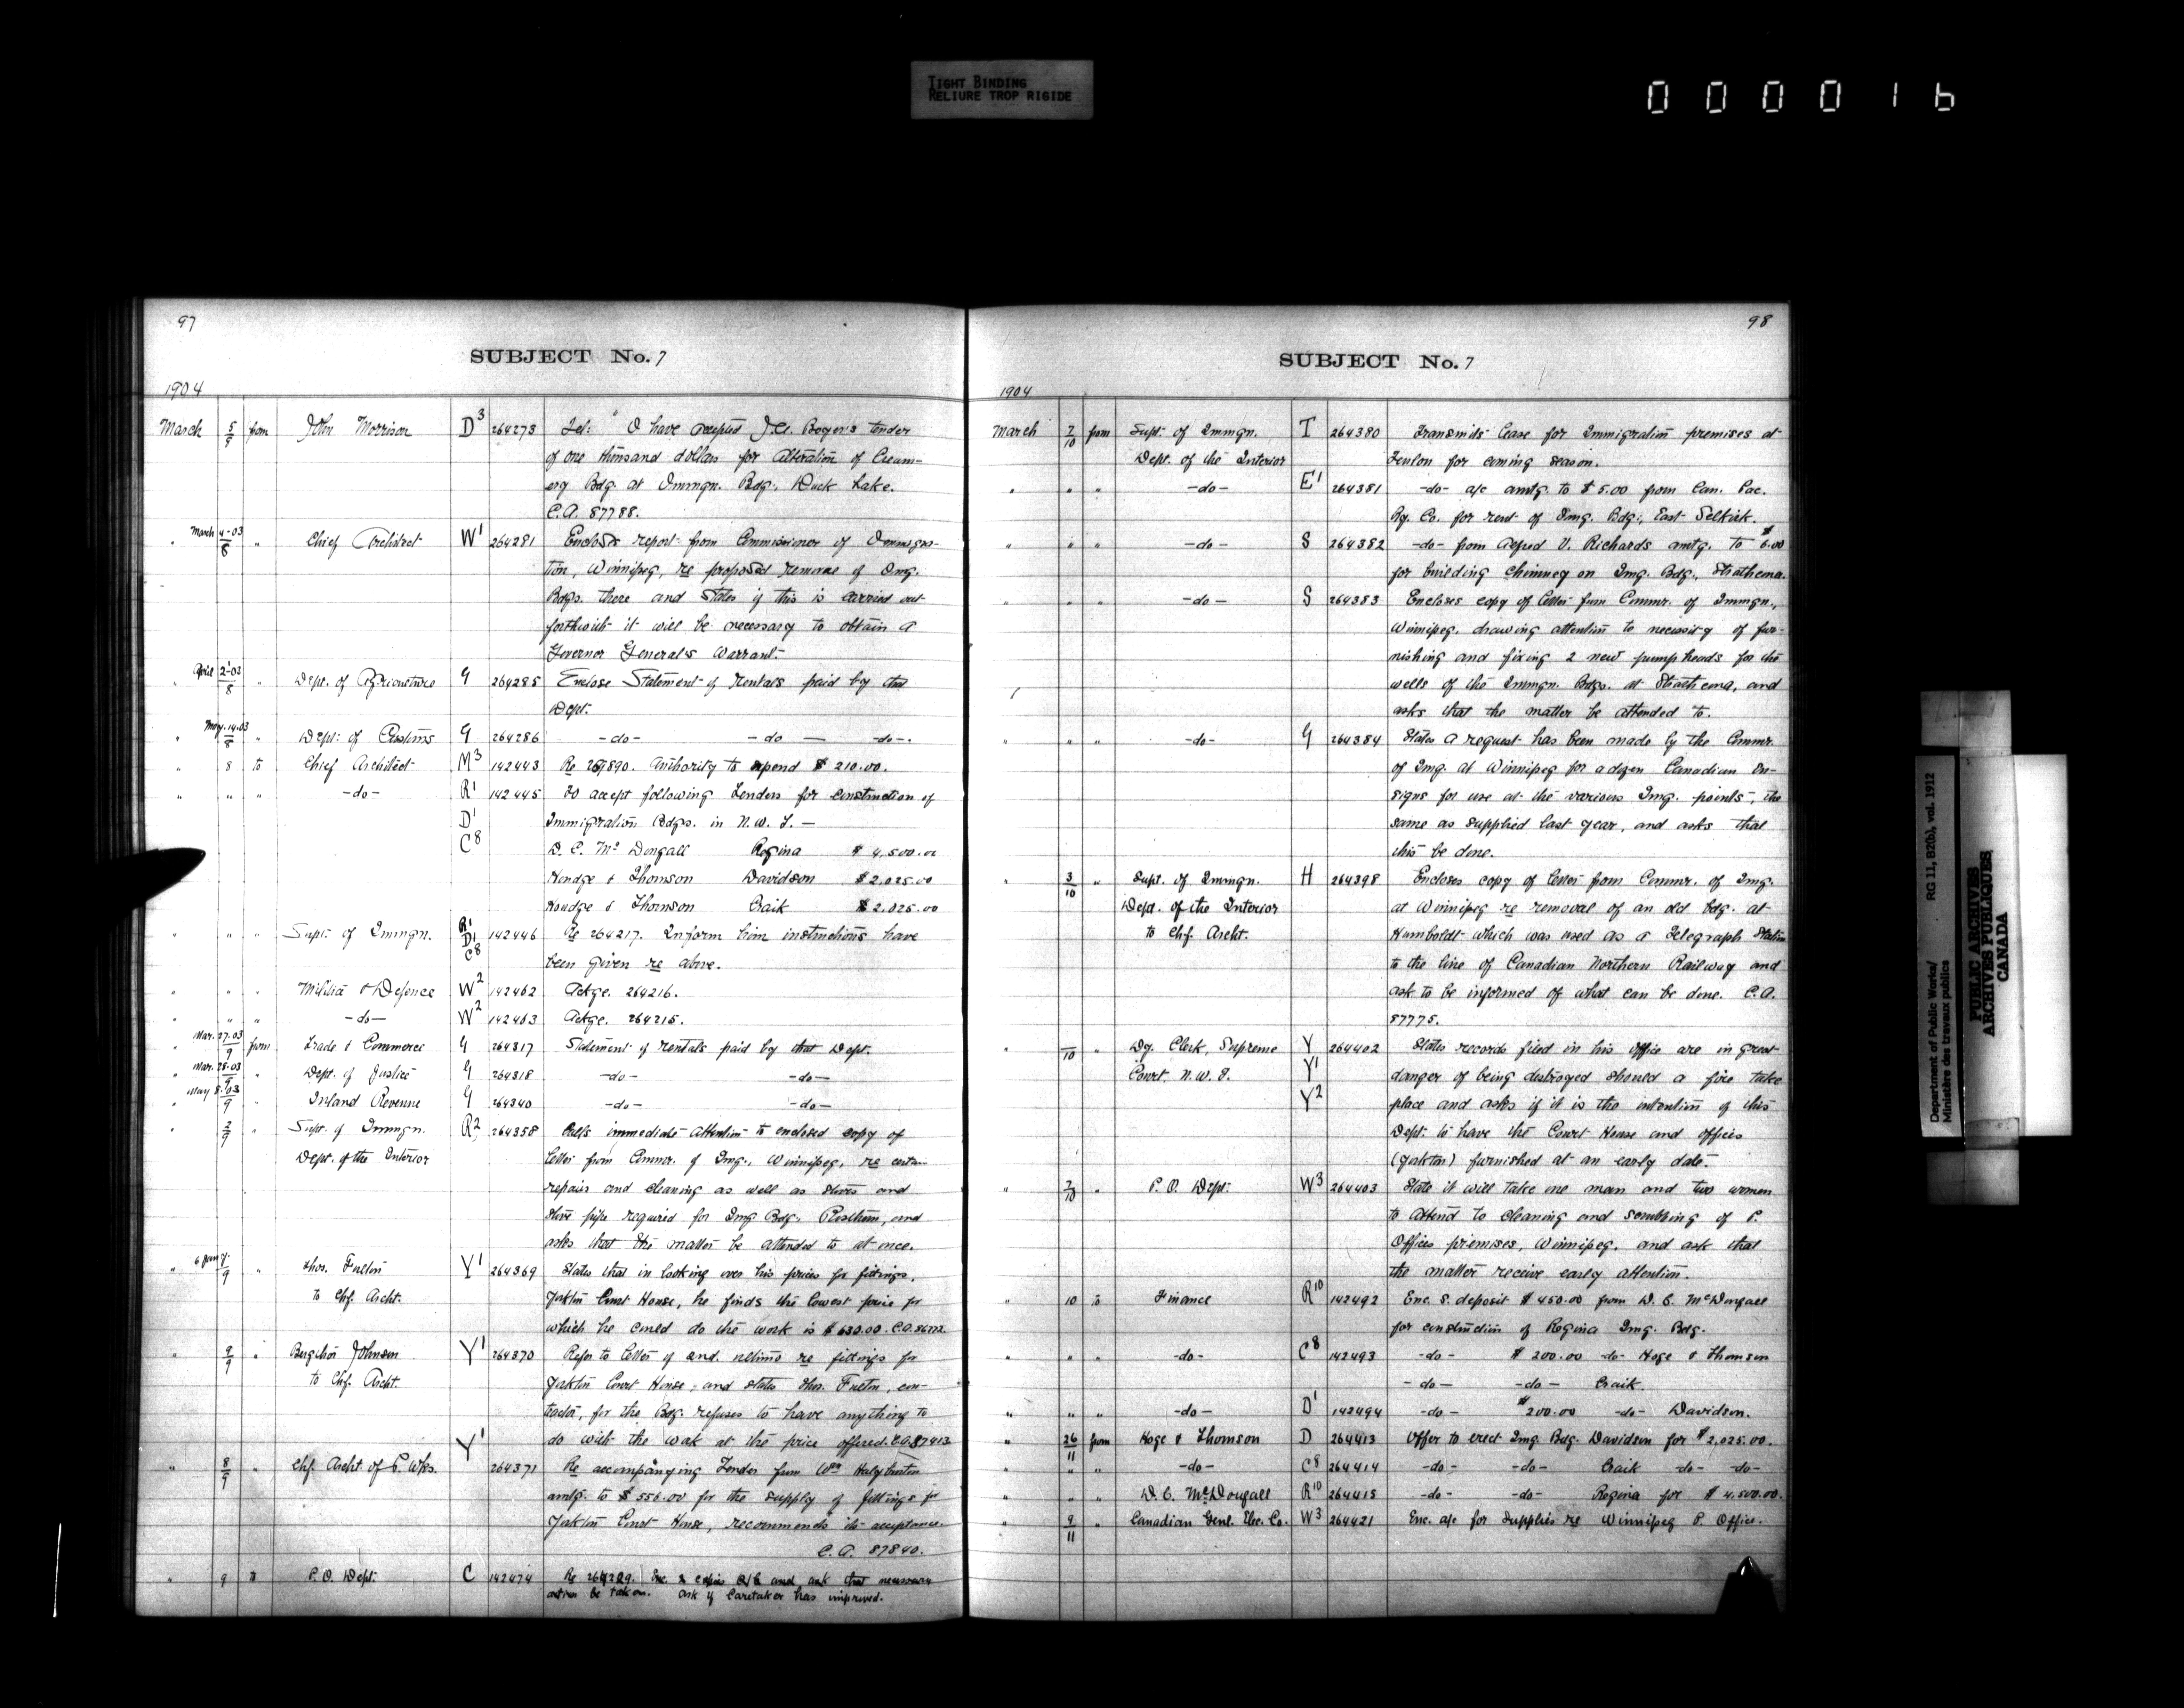 TIGHT BINDING
RELIURE TROP RIGIDE
000016
97
SUBJECT No. 7
1904
March 5/9 from John Morrison D3 264273 Tel: "I have accepted J.A. Boyer's tender
of one thousand dollars for alteration of Cream-
ery Bdg. at Immgn. Bdg., Duck Lake.
C.A. 87788.
" March 4-03/8 " Chief Architect W1 264281 Encloses report from Commissioner of Immigra-
tion, Winnipeg, re proposed removal of Img.
Bdgs. there and states if this is carried out
forthwith it will be necessary to obtain a
Governor General's Warrant.
" April 2-03/8 " Dept. of Agriculture G 264285 Enclose Statement of rentals paid by that
Dept.
" May 14.03/8 " Dept. of Customs G 264286 -do- -do- -do-.
" 8 to Chief Architect M3 142443 Re 257890. Authority to expend $ 210.00.
" " " -do- R1 142445 To accept following Tenders for construction of
D1 Immigration Bdgs. in N.W.T. —
C8 D. C. Mc Dougall Regina $ 4,500.00
Houdge & Thomson Davidson $ 2,025.00
Houdge & Thomson Craik $ 2,025.00
" " " Supt. of Immgn. R1 D1 C8 142446 Re 264217. Inform him instructions have
been given re above.
" " " Militia & Defence W2 142462 Ackge. 264216.
" " " -do- W2 142463 Ackge. 264215.
" Mar. 27.03/9 from Trade & Commerce G 264317 Statement of rentals paid by that Dept.
" Mar. 28.03/9 " Dept. of Justice G 264318 -do- -do-
" May 8.03/9 " Inland Revenue G 264340 -do- -do-
" 2/9 " Supt. of Immgn. R2 264358 Calls immediate attention to enclosed copy of
Dept. of the Interior letter from Commr. of Img., Winnipeg, re certain
repairs and cleaning as well as stoves and
stove pipe required for Img. Bdg. Rosthern, and
asks that the matter be attended to at once.
" 6 Jany/9 " Thos. Fulton Y1 264369 States that in looking over his prices for fittings,
to Chf. Archt. Yorkton Court House, he finds the lowest price for
which he could do the work is $ 630.00. C.A.
" 9/9 " Johnson Y1 264370 Refer to letter of 2nd. ultimo re fittings for
to Chf. Archt. Yorkton Court House, and states Thos. Fulton, con-
tractor, for the Bdg. refuses to have anything to
do with the work at the price offered. C.A. 87413
" 8/9 " Chf. Archt. of P. Wks. Y1 264371 Re accompanying Tender from Wm Halyburton
amtg. to $ 556.00 for the supply of fittings for
Yorkton Court House, recommends its acceptance.
C.A. 87840.
" 9 to P.O. Dept. C 142474 Re 264229. Enc. 2 copies and ask that necessary
action be taken. Ask if Caretaker has improved.
98
SUBJECT No. 7
1904
March 7/10 from Supt. of Immgn. T 264380 Transmits lease for Immigration premises at
Dept. of the Interior Teulon for coming season.
" " " -do- E1 264381 -do- a/c amtg. to $ 5.00 from Can. Pac.
Ry. Co. for rent of Img. Bdg., East Selkirk.
" " " -do- S 264382 -do- from Alfred V. Richards amtg. to $6.00
for building chimney on Img. Bdg., Strathcona.
" " " -do- S 264383 Encloses copy of letter from Commr. of Immgn.,
Winnipeg, drawing attention to necessity of fur-
nishing and fixing 2 new pumpheads for the
wells of the Immgn. Bdgs. at Strathcona, and
asks that the matter be attended to.
" " " -do- G 264384 States a request has been made by the Commr.
of Img. at Winnipeg for a dozen Canadian En-
signs for use at the various Img. points, the
same as supplied last year, and asks that
this be done.
" 3/10 " Supt. of Immgn. H 264398 Encloses copy of letter from Commr. of Img.
Dept. of the Interior at Winnipeg re removal of an old bdg. at
to Chf. Archt. Humboldt which was used as a Telegraph Station
to the line of Canadian Northern Railway and
ask to be informed of what can be done. C.A.
87775.
" /10 " Dy. Clerk, Supreme Y 264402 States records filed in his office are in great
Court, N.W.T. Y1 danger of being destroyed should a fire take
Y2 place and asks if it is the intention of this
Dept. to have the Court House and offices
(Yorkton) furnished at an early date.
" 7/10 " P. O. Dept. W3 264403 State it will take one man and two women
to attend to cleaning and scrubbing of P.
Offices premises, Winnipeg, and ask that
the matter receive early attention.
" 10 to Finance R10 142492 Enc. S. deposit $ 450.00 from D. C. McDougall
for construction of Regina Img. Bdg.
" " " -do- C8 142493 -do- $ 200.00 -do- Hoge & Thomson
-do- -do- Craik.
" " " -do- D1 142494 -do- $200.00 -do- Davidson.
" 26/11 from Hoge & Thomson D 264413 Offer to erect Img. Bdg. Davidson for $ 2,025.00.
" " " -do- C8 264414 -do- -do- Craik -do- -do-
" " " D. C. McDougall R10 264415 -do- -do- Regina for $ 4,500.00.
" 9/11 " Canadian Genl. Elec. Co. W3 264421 Enc. a/c for supplies re Winnipeg P. Office.
Department of Public Works/ RG 11, B2(b), vol. 1912
Ministère des travaux publics
PUBLIC ARCHIVES
ARCHIVES PUBLIQUES
CANADA